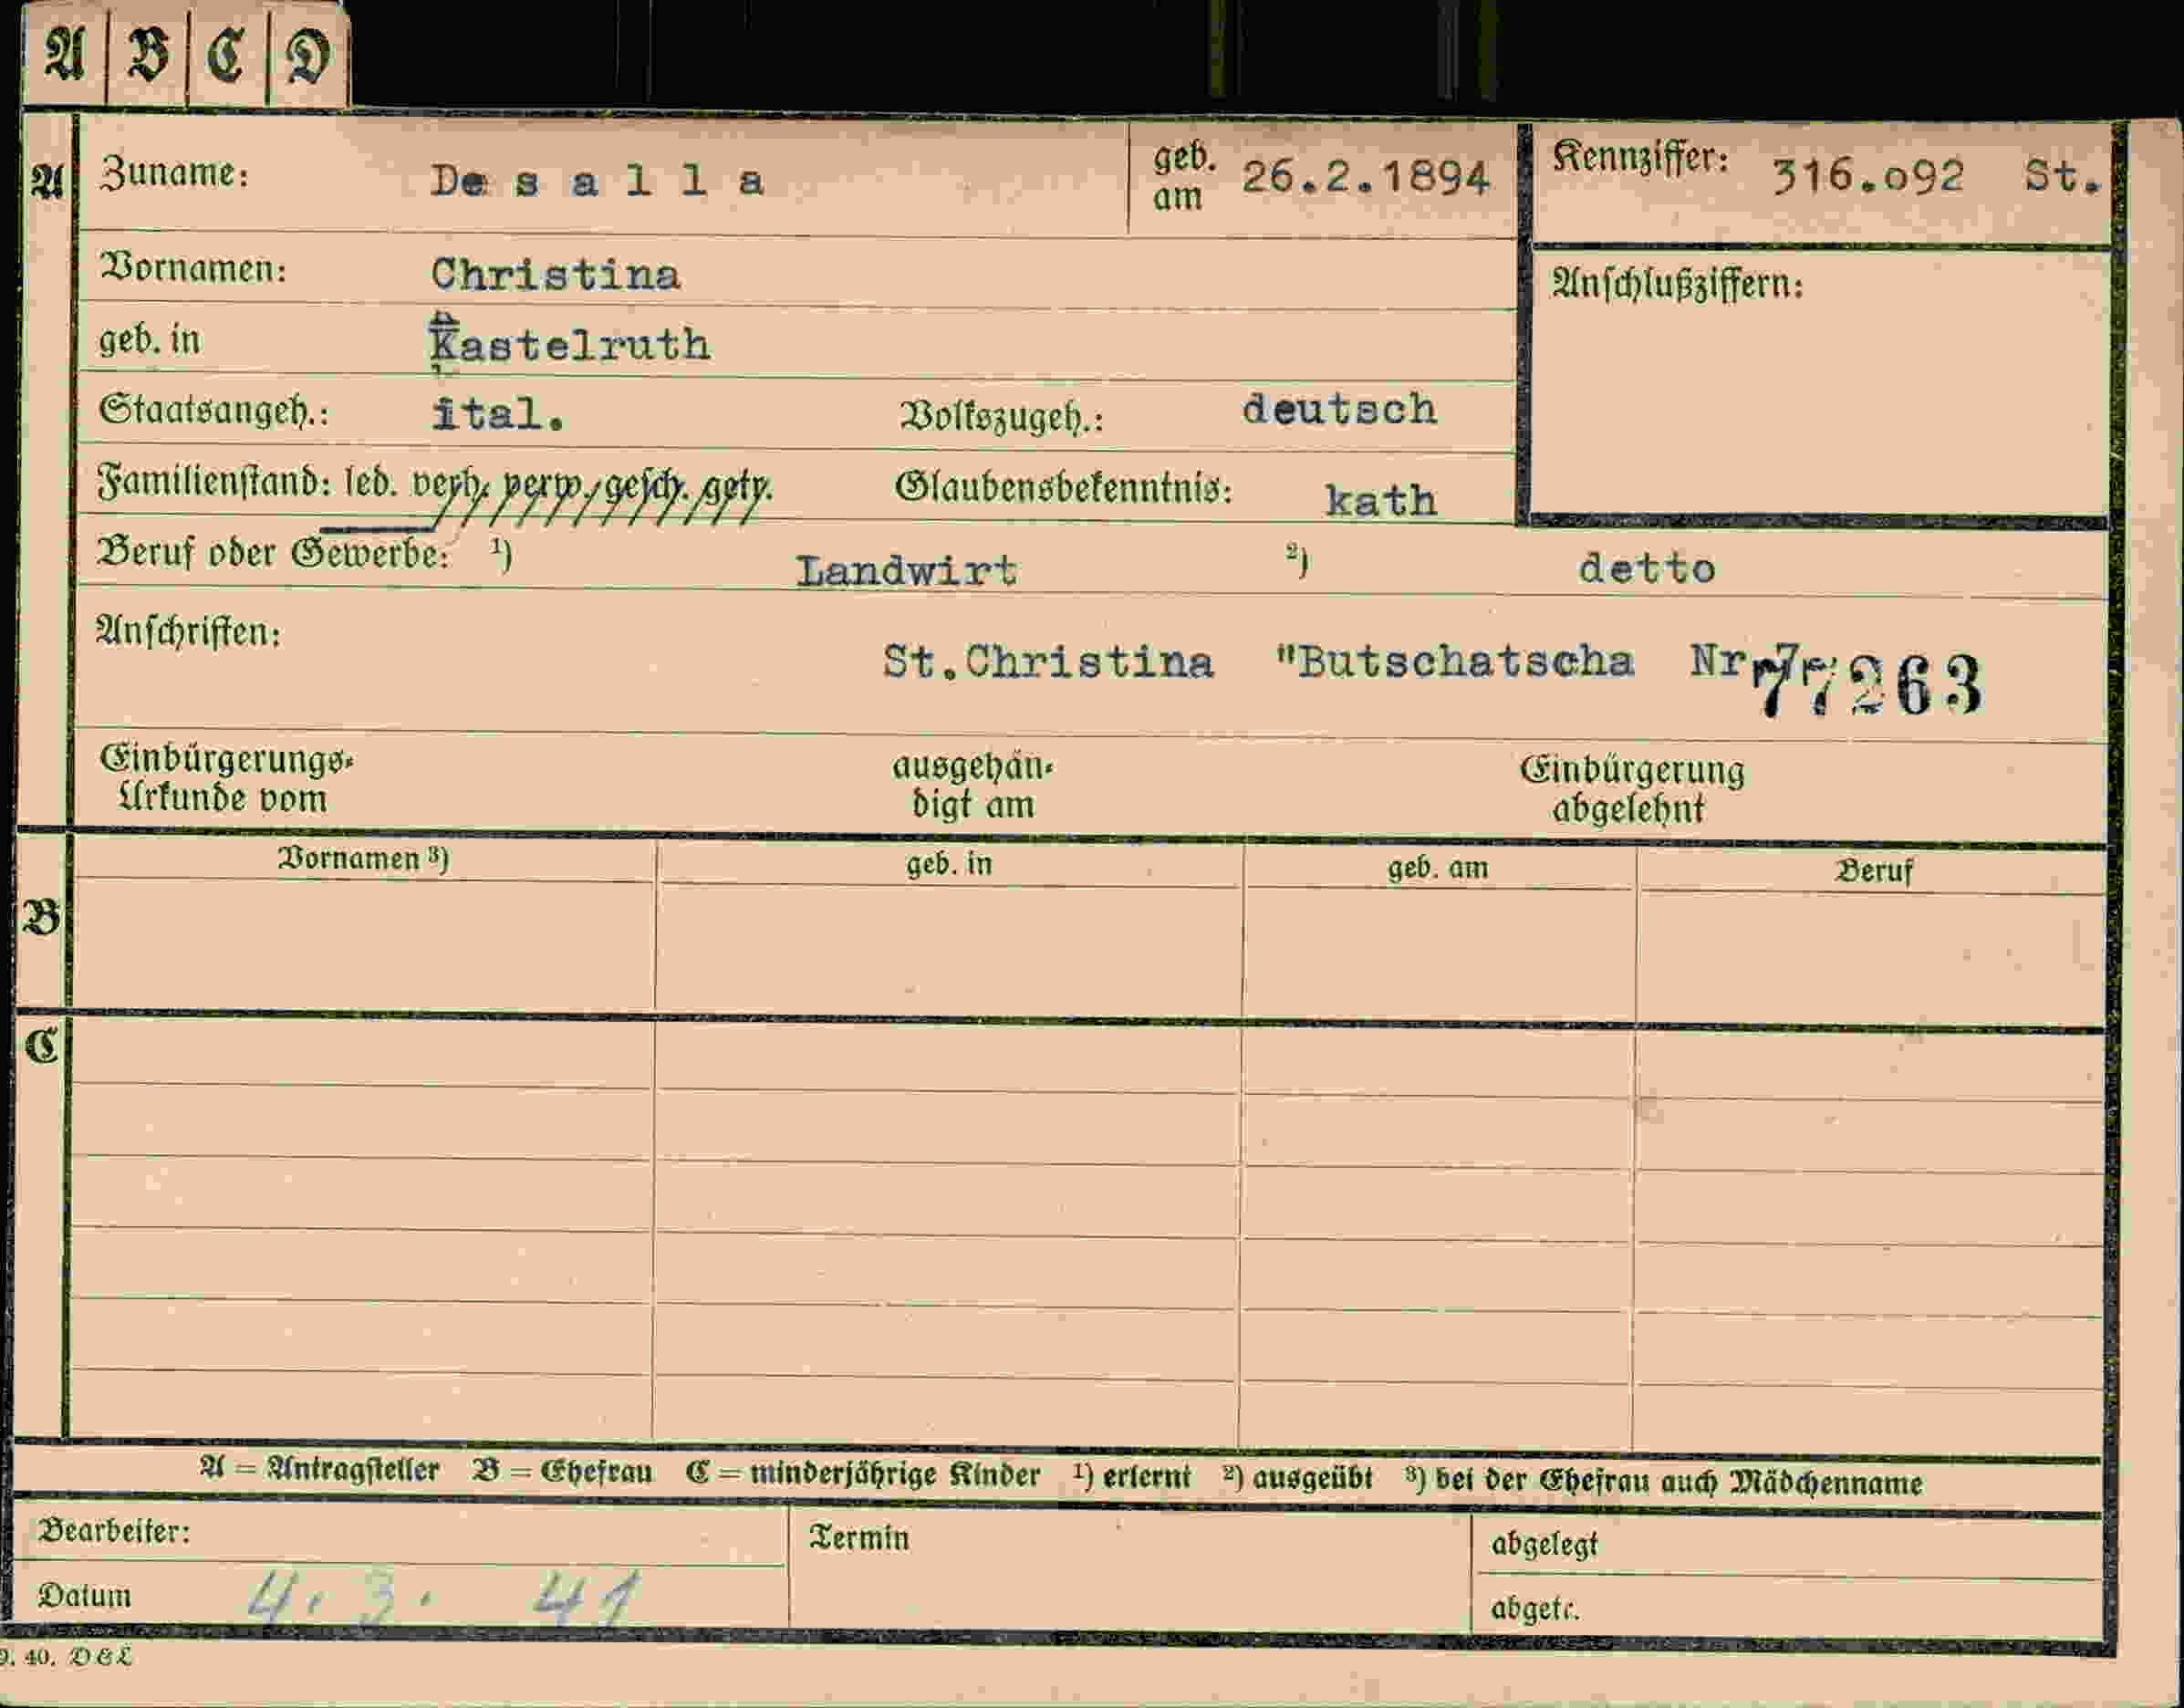 A B C D
A Zuname: De s a l l a geb. am 26.2.1894 Kennziffer: 316.o92 St.
Vornamen: Christina Anschlußziffern:
geb. in Kastelruth
Staatsangeh.: ital. Volkszugeh.: deutsch
Familienstand: led. verh. verw. gesch. getr. Glaubensbekenntnis: kath
Beruf oder Gewerbe: 1) Landwirt 2) detto
Anschriften:
St.Christina "Butschatscha Nr 77263
Einbürgerungs- ausgehän- Einbürgerung
Urkunde vom digt am abgelehnt
Vornamen 3) geb. in geb. am Beruf
B
C
A = Antragsteller B = Ehefrau C = minderjährige Kinder 1) erlernt 2) ausgeübt 3) bei der Ehefrau auch Mädchenname
Bearbeiter: Termin abgelegt
Datum 4. 3. 41 abgetr.
9. 40. D&L